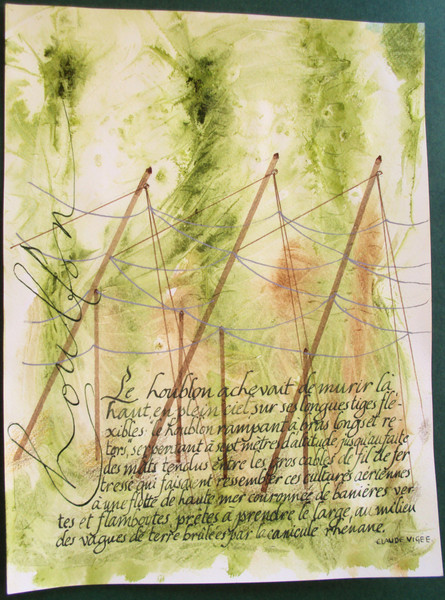 Houblon
Le houblon achevait de murir là
haut, en plein ciel, sur ses longues tiges flé-
xibles: le houblon rampant à bras longs et re-
tors, serpentant à sept mètres d'altitude jusqu'au faîte
des mâts tendus entre les gros cables de fil de fer
tressé qui faisaient ressembler ces cultures aériennes
à une flotte de haute mer couronnée de banières ver
tes et flamboutes prêtes à prendre le large, au milieu
des vagues de terre brûlées par la canicule rhénane.
CLAUDE VIGEE